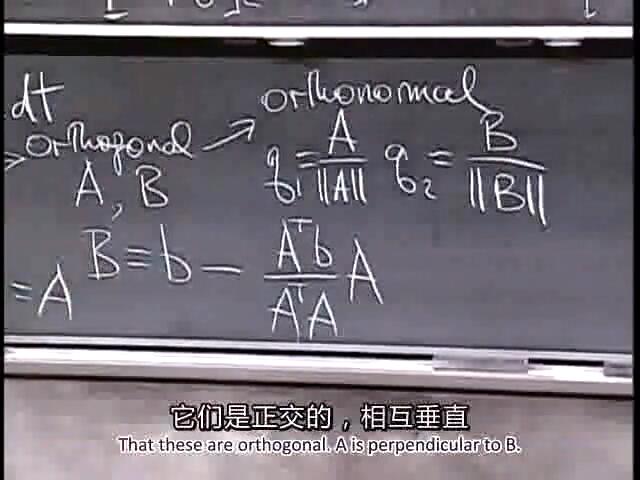 .dt
orthogonal → orthonormal
A, B q₁ = A/||A|| q₂ = B/||B||
= A B = b - Aᵀb/AᵀA A
它们是正交的，相互垂直
That these are orthogonal. A is perpendicular to B.